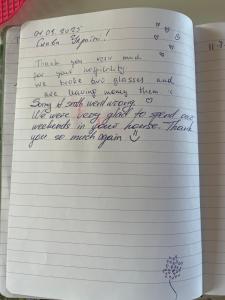 04.01.2025
Слава Україні!
Thank you very much
for your hospitility
we broke two glasses and
are leaving money them :
Sorry if smth went wrong.
We were very glad to spend our
weekends in your house. Thank
you so much again